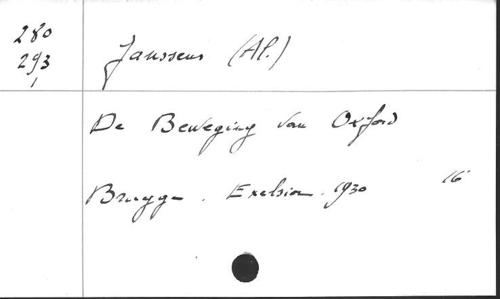 280
293
1
Janssens (Al.)
De Beweging van Oxford
Brugge. Exelsior. 1930 16